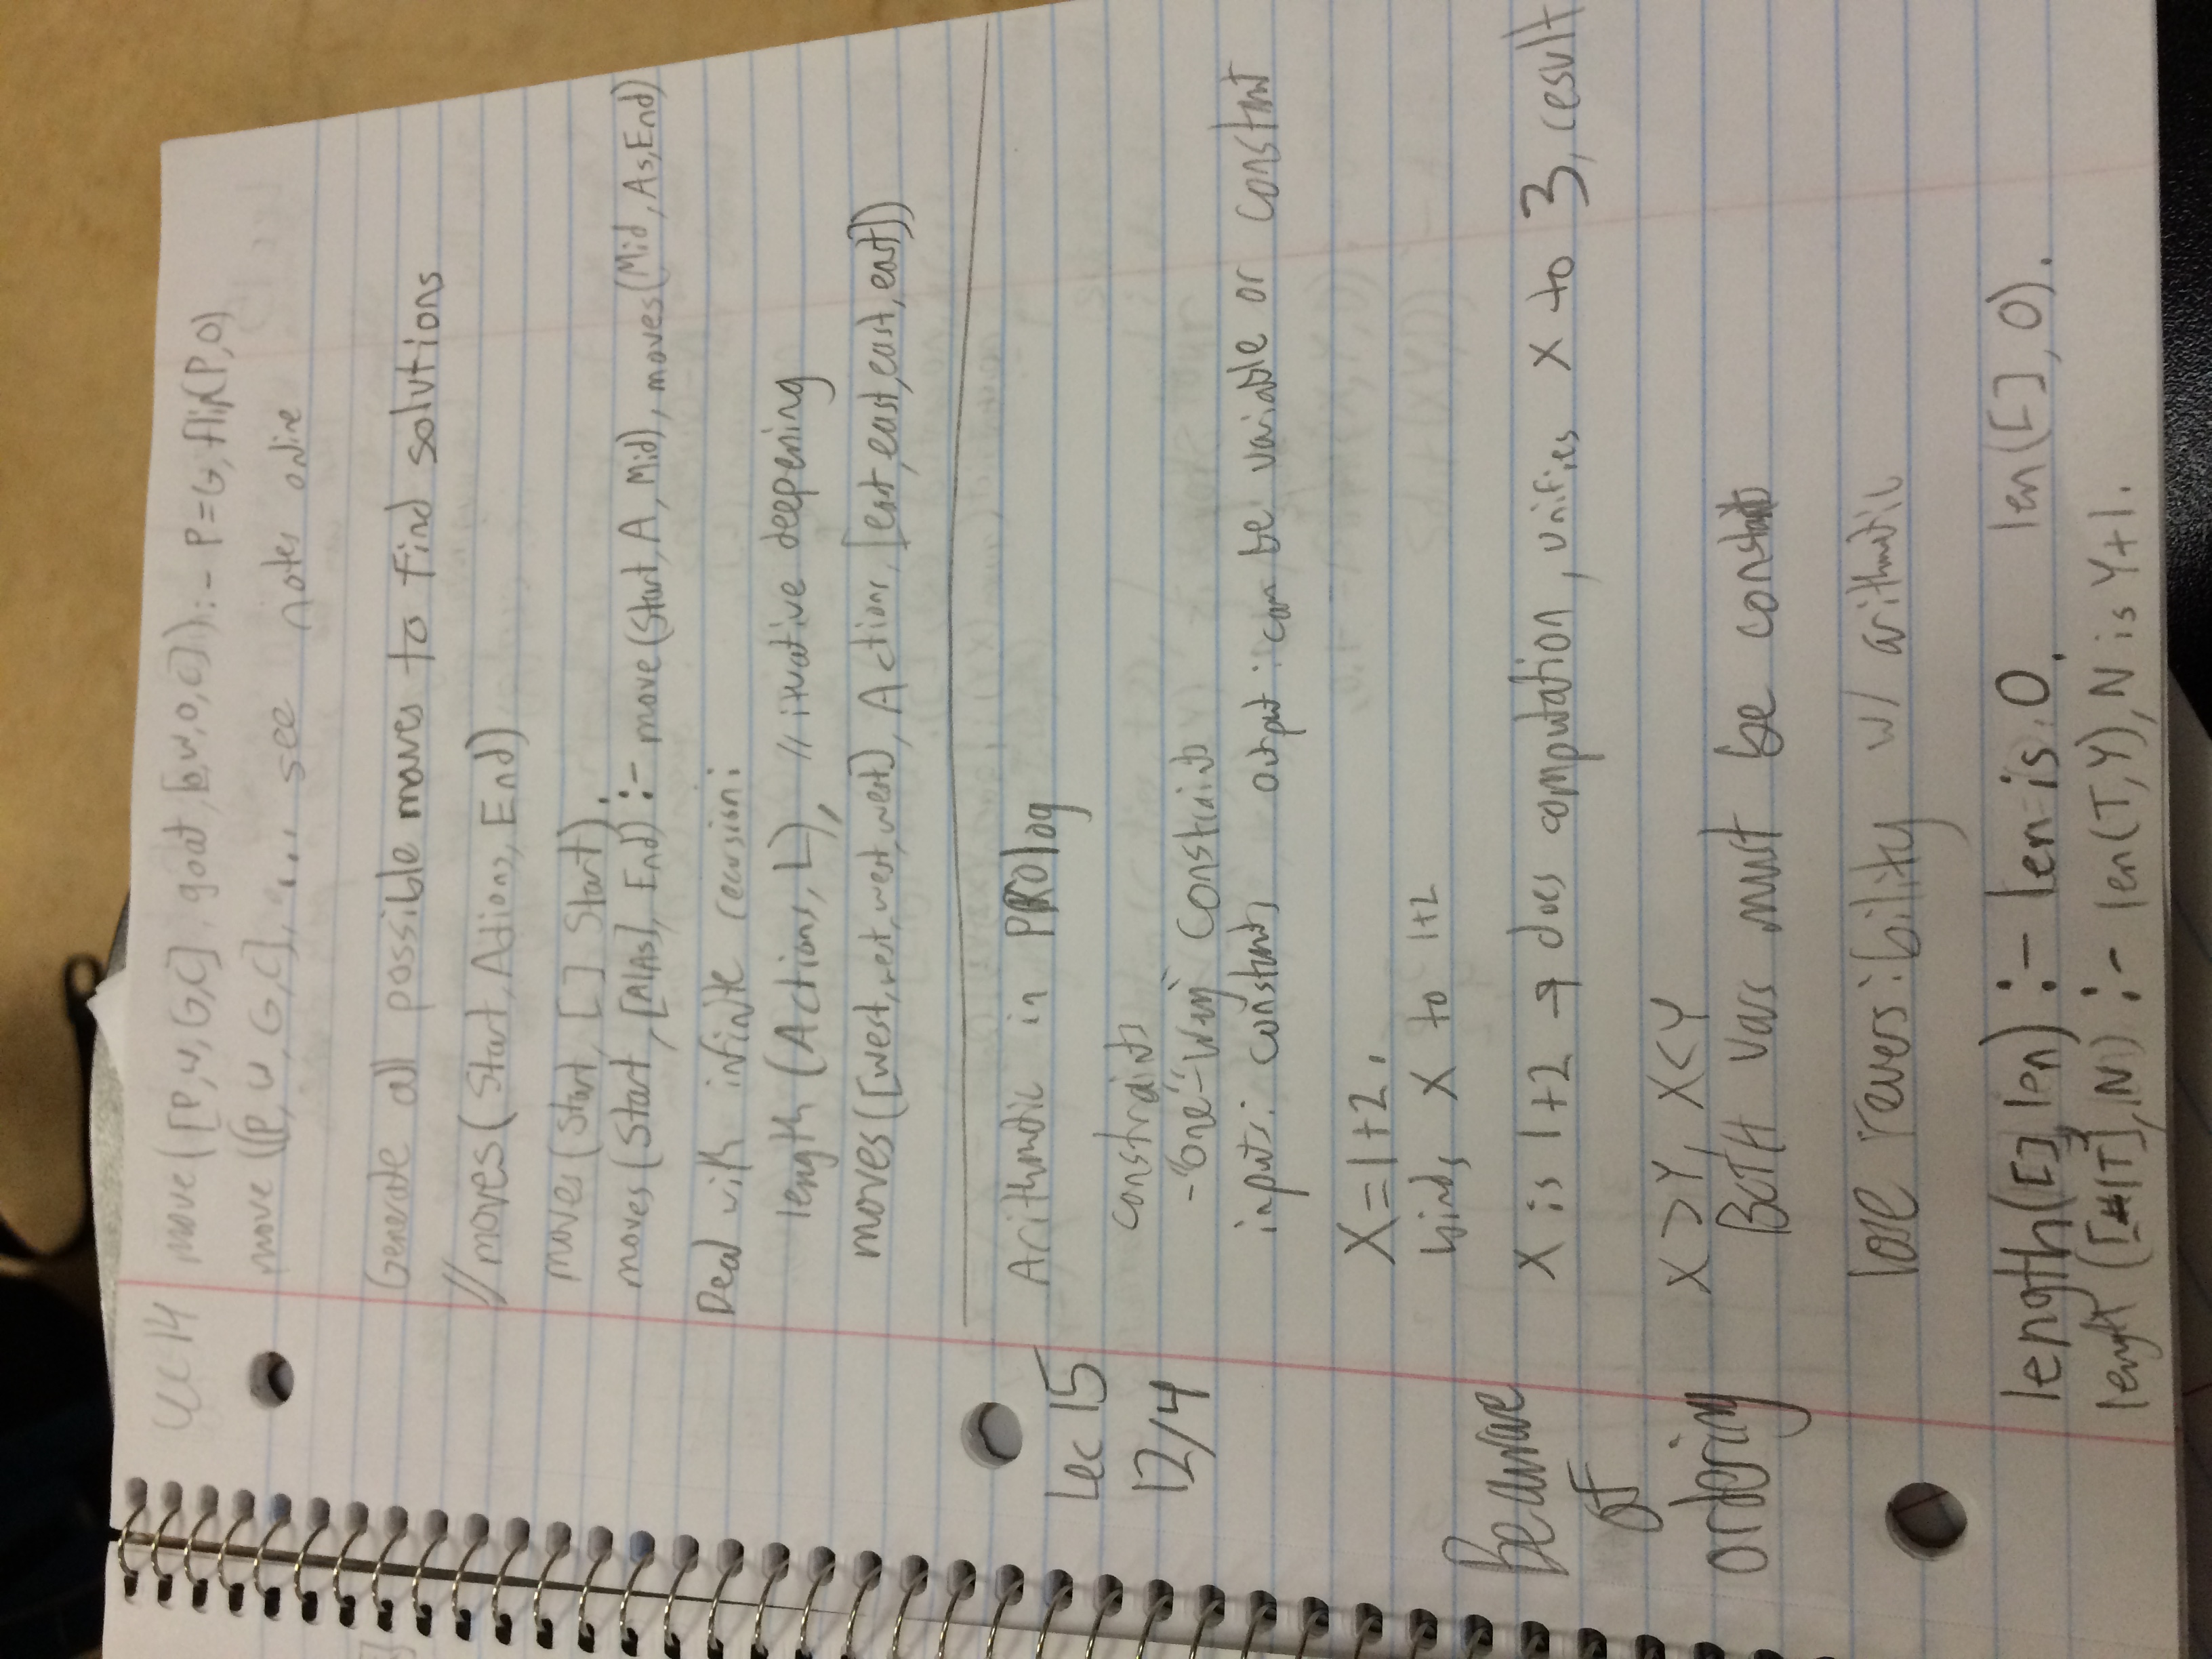 Lec 14 move([P,W,G,C], goat, [O,W,O,C]) :- P=G, flip(P,O)
move([P,W,G,C], .... see notes online
Generate all possible moves to find solutions
// moves(Start, Actions, End)
moves(Start, [] Start).
moves(Start, [A|As], End) :- move(Start, A, Mid), moves(Mid, As, End)
Deal with infinite recursion:
length (Actions, L), // iterative deepening
moves([west,west,west,west], Actions, [east,east,east,east])
Arithmetic in PROlog
Lec 15
12/4
constraints
- "one"-way" constraints
inputs: constants output: can be variable or constant
X=1+2.
binds X to 1+2
Beware
of
ordering
X is 1+2 → does computation, unifies X to 3, result
X >Y, X<Y
BOTH vars must be constants
lose reversibility w/ arithmetic
length([], len) :- len is 0. len([], 0).
length ([H|T], N) :- len(T,Y), N is Y+1.